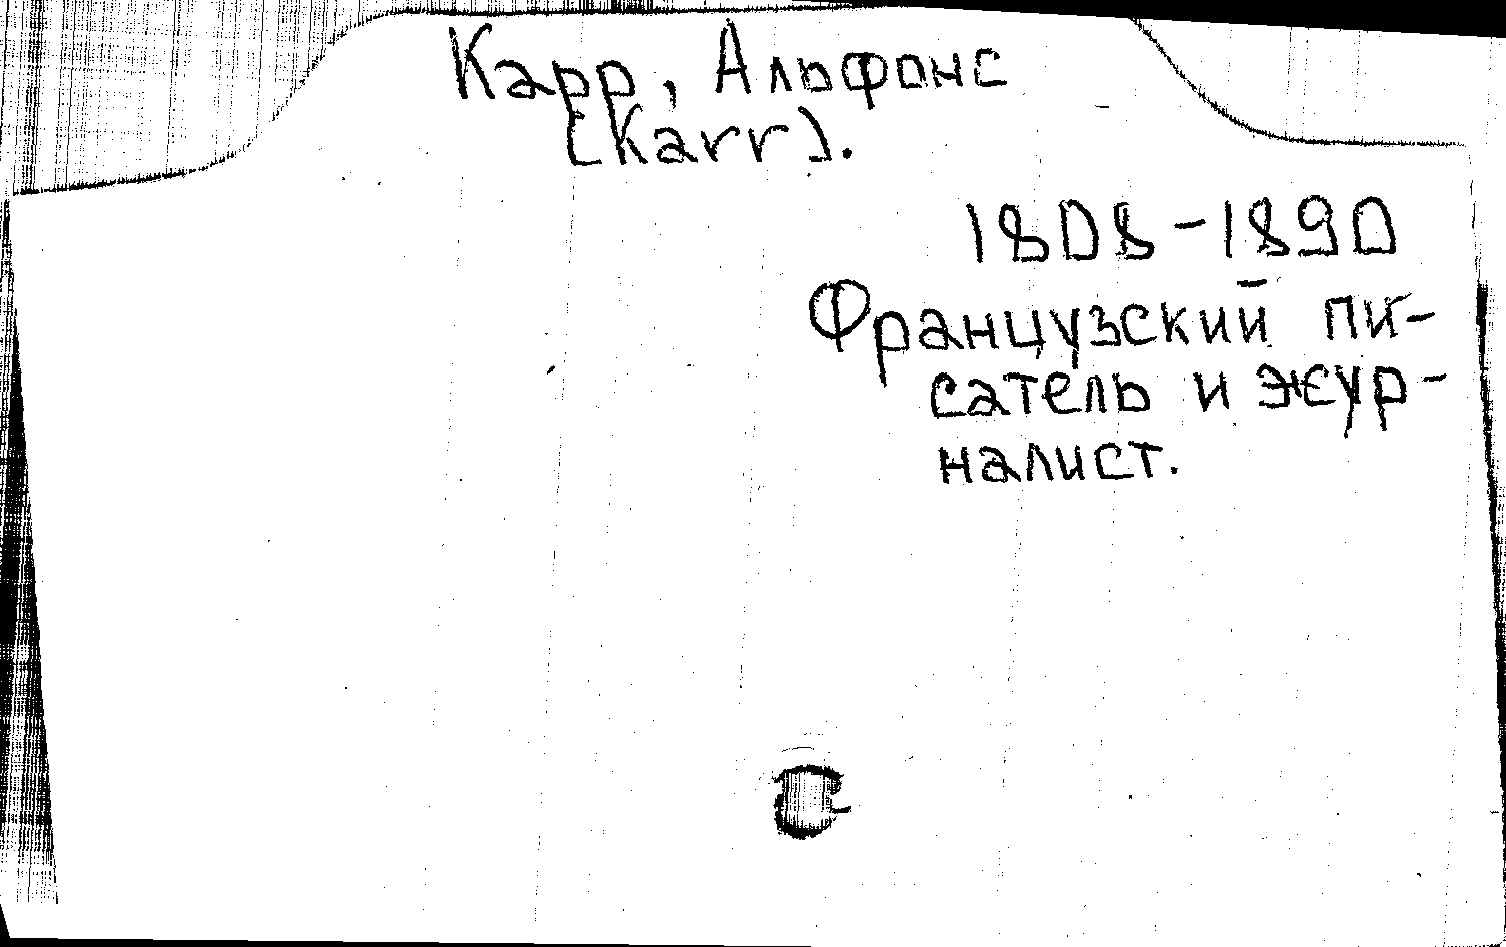 Карр, Альфонс
[Karr].
1808-1890
Французский пи-
сатель и жур-
налист.